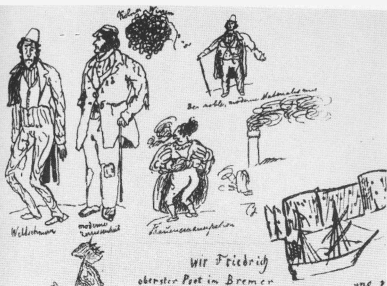 Der noble, moderne
Weltschmerz
moderne
Zerrissenheit
Frauenemanzipation
Wir Friedrich
oberster Poet im Bremer